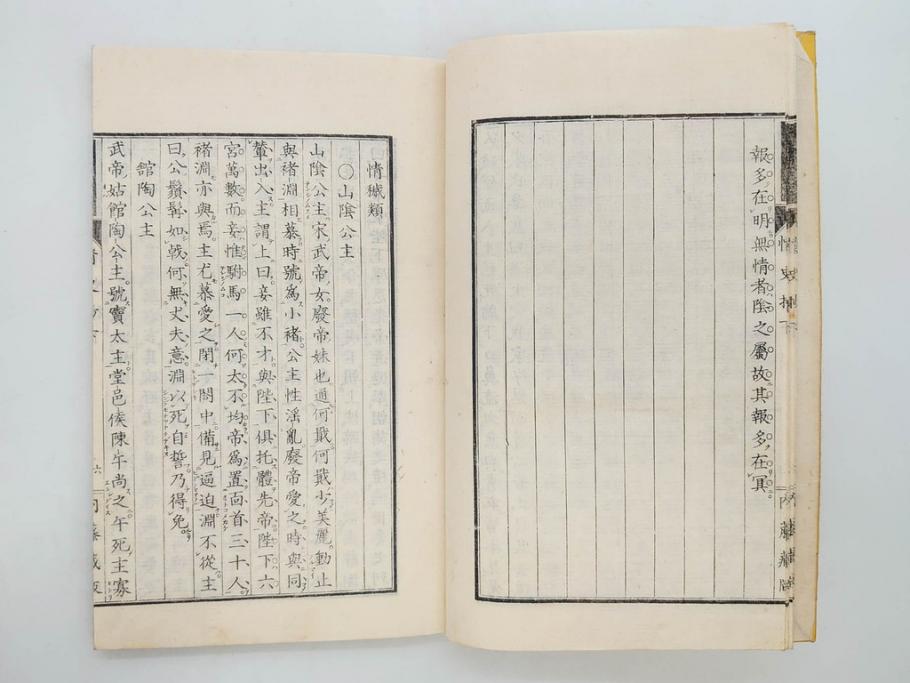 報多在明無情者陰之屬故其報多在冥
情史抄 下
內藤藏版
情穢類
〇山陰公主
山陰公主宋武帝女廢帝妹也適何戢何戢少美麗動止
與褚淵相慕時號為小褚公主性淫亂廢帝愛之時與同
輦出入主謂上曰妾雖不才與陛下俱托體先帝陛下六
宮萬數而妾惟駙馬一人何太不均帝為置面首三十人
褚淵亦與焉主尤慕愛之閉一閤中備見逼迫淵不從主
曰公鬚髯如戟何無丈夫意淵以死自誓乃得免
館陶公主
武帝姑館陶公主號竇太主堂邑侯陳午尚之午死主寡
六